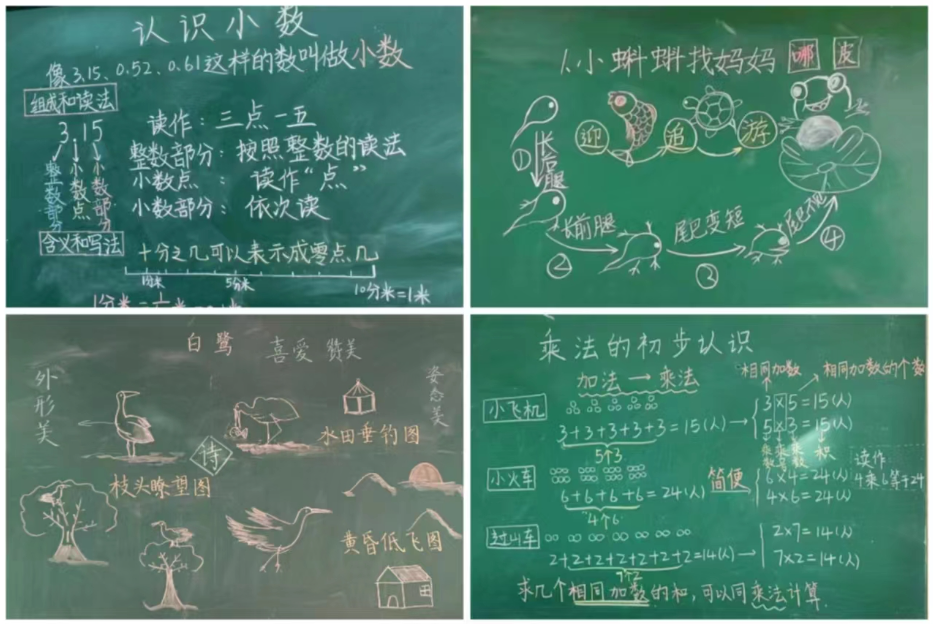 认识小数
像3.15、0.52、0.61这样的数叫做小数
组成和读法
3.15
整数部分
小数点
小数部分
读作：三点一五
整数部分：按照整数的读法
小数点：读作“点”
小数部分：依次读
含义和写法
十分之几可以表示成零点几
1分米
5分米
10分米=1米
1.小蝌蚪找妈妈
哪
皮
迎
追
游
①
长后腿
长前腿
②
尾巴变短
③
④
白鹭
喜爱 赞美
外形美
姿态美
诗
水田垂钓图
枝头瞭望图
黄昏低飞图
乘法的初步认识
加法→乘法
相同加数
相同加数的个数
小飞机
3+3+3+3+3=15(人)
5个3
3×5=15(人)
5×3=15(人)
乘数
乘号
乘数
积
读作
4乘6等于24
小火车
6+6+6+6=24(人)
4个6
简便
6×4=24(人)
4×6=24(人)
过山车
2+2+2+2+2+2+2=14(人)
7个2
2×7=14(人)
7×2=14(人)
求几个相同加数的和，可以同乘法计算.